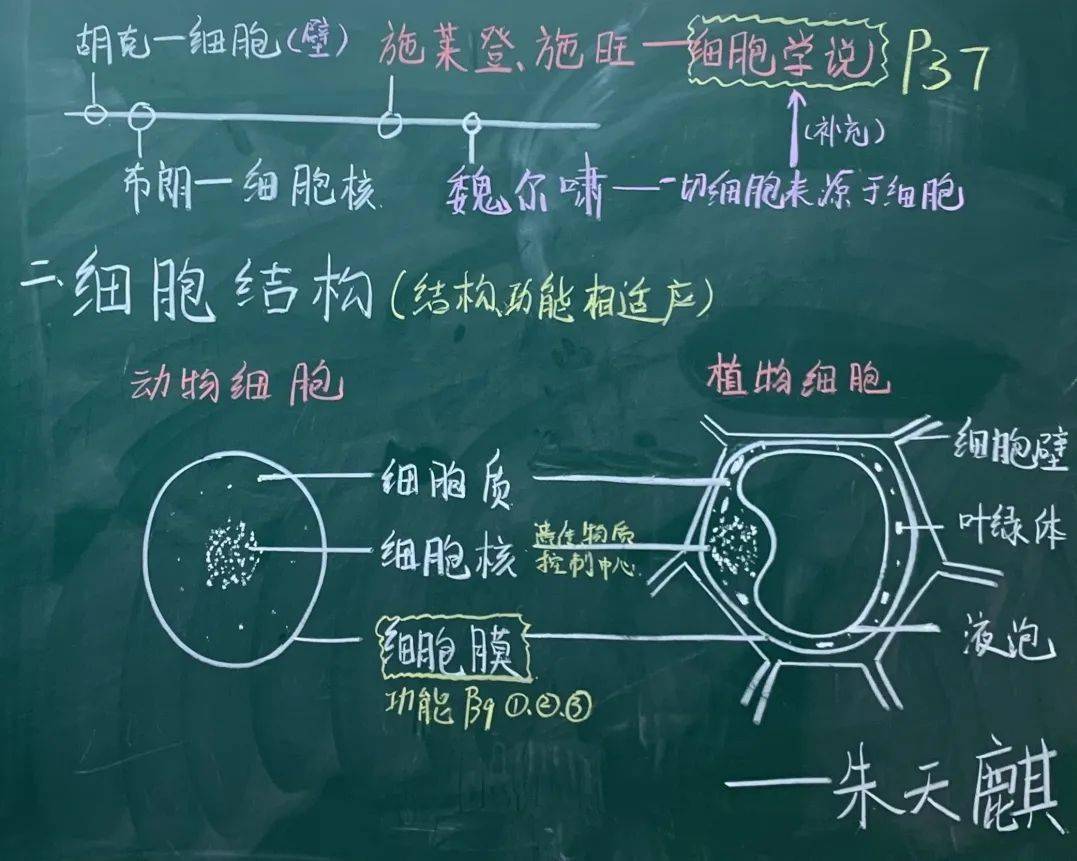 胡克一细胞(壁) 施莱登、施旺一细胞学说 P37
(补充)
希朗一细胞核 魏尔啸一一切细胞来源于细胞
二、细胞结构(结构、功能相适应)
动物细胞 植物细胞
细胞壁
细胞质
叶绿体
细胞核 遗传物质
控制中心
细胞膜 液泡
功能 P39 ①、②、③
——朱天麒